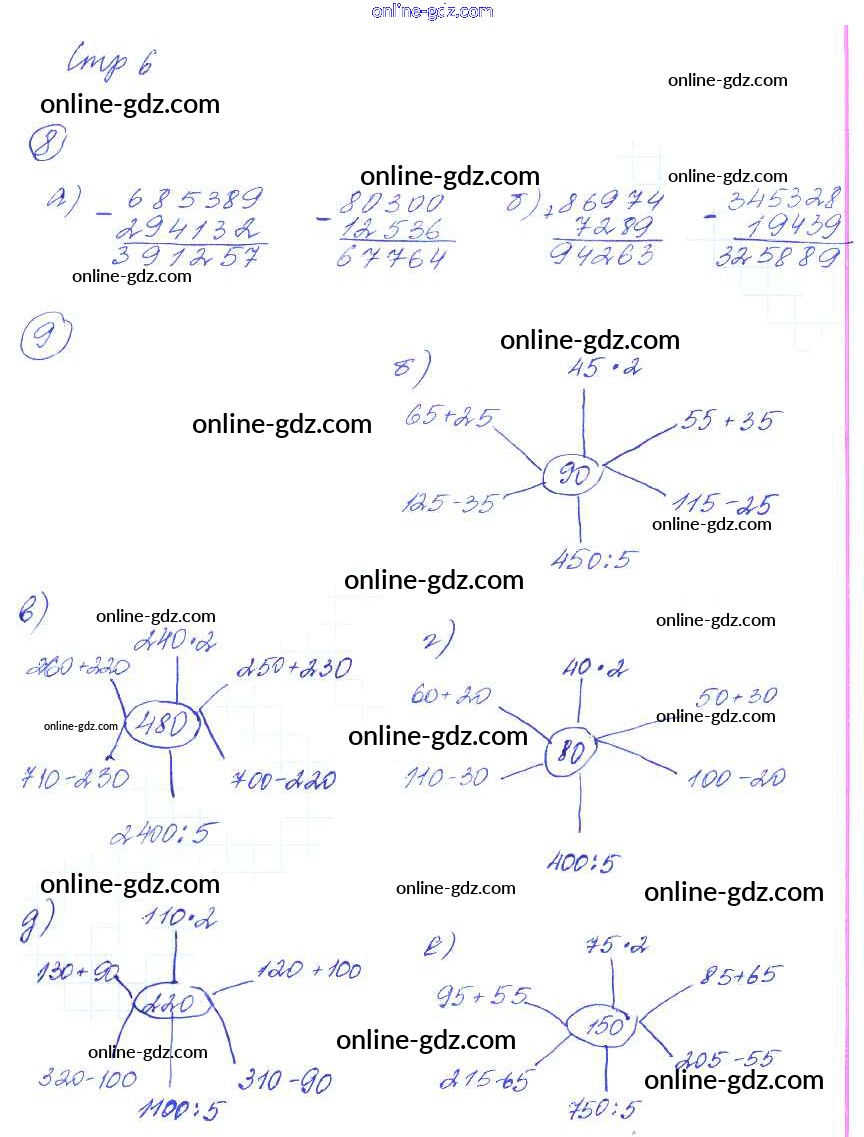 online-gdz.com
Стр 6
online-gdz.com
online-gdz.com
8
online-gdz.com
online-gdz.com
а) - 685389 - 80300 б) + 86974 - 345328
294132 12536 7289 19439
391257 67764 94263 325889
online-gdz.com
9
online-gdz.com
б) 45·2
65+25 55+35
online-gdz.com
90
125-35 115-25
online-gdz.com
450:5
online-gdz.com
в)
online-gdz.com
online-gdz.com
240·2
г)
260+220 250+230
40·2
60+20 50+30
online-gdz.com
online-gdz.com
480
online-gdz.com
80
710-230 700-220
110-30 100-20
2400:5
400:5
online-gdz.com
online-gdz.com
online-gdz.com
д) 110·2
е) 75·2
130+90 120+100
95+55 85+65
220
150
online-gdz.com
online-gdz.com
320-100 310-90
215-65 205-55
online-gdz.com
1100:5
750:5